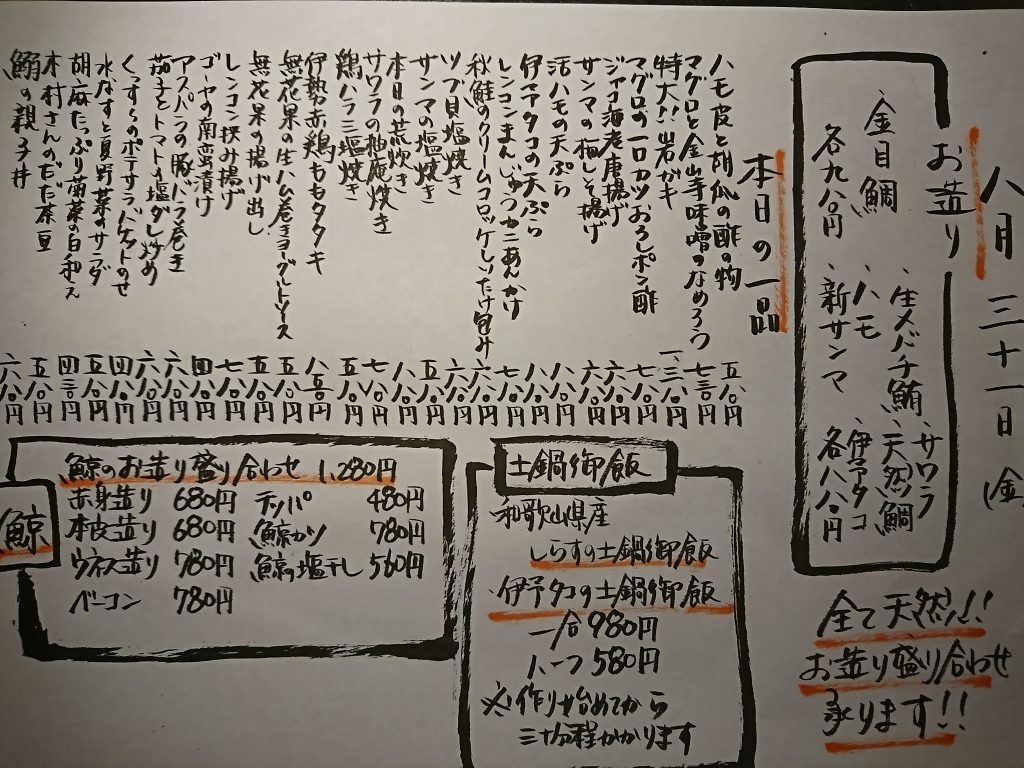 八月三十一日(金)
お造り
、金目鯛
各九八〇円
、生メバチ鮪、サワラ
、ハモ 、天然鯛
、新サンマ 、伊予タコ
各八八〇円
全て天然!!
お造り盛り合わせ
承ります!!
本日の一品
ハモ皮と胡瓜の酢の物 五八〇円
マグロと金山寺味噌のなめろう 七三〇円
特大!!岩ガキ 一、三八〇円
マグロの一口カツおろしポン酢 七八〇円
ジャコ海老唐揚げ 六八〇円
サンマの梅しそ揚げ 六八〇円
活ハモの天ぷら 九八〇円
伊予タコの天ぷら 八八〇円
レンコンまんじゅうカニあんかけ 七八〇円
秋鮭のクリームコロッケしいたけ包み 六八〇円
ツブ貝塩焼き 六八〇円
サンマの塩焼き 五八〇円
本日の荒炊き 八八〇円
サワラの柚庵焼き 七八〇円
鶏ハラミ塩焼き 五八〇円
伊勢赤鶏ももタタキ 八五〇円
無花果の生ハム巻きヨーグルトソース 五八〇円
無花果の揚げ出し 五八〇円
レンコン挟み揚げ 七八〇円
ゴーヤの南蛮漬け 四八〇円
アスパラの豚バラ巻き 六八〇円
茄子とトマトの塩ダレ炒め 六八〇円
くずらのポテサラバケットのせ 四八〇円
水なすと夏野菜のサラダ 五八〇円
胡麻たっぷり菊菜の白和え 四三〇円
木村さんのだだ茶豆 五八〇円
鰯の親子丼 六八〇円
土鍋御飯
・和歌山県産
しらすの土鍋御飯
・伊予タコの土鍋御飯
一合980円
ハーフ580円
※作り始めてから
三十分程かかります
鯨
鯨のお造り盛り合わせ 1,280円
赤身造り 680円 テッパ 480円
本皮造り 680円 鯨カツ 780円
ウネス造り 780円 鯨の塩干し 560円
ベーコン 780円